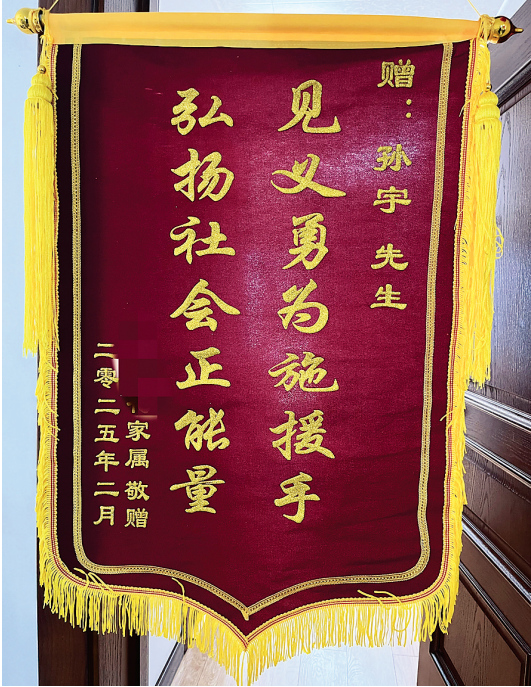 赠：孙宇 先生
见义勇为施援手
弘扬社会正能量
家属敬赠
二零二五年二月